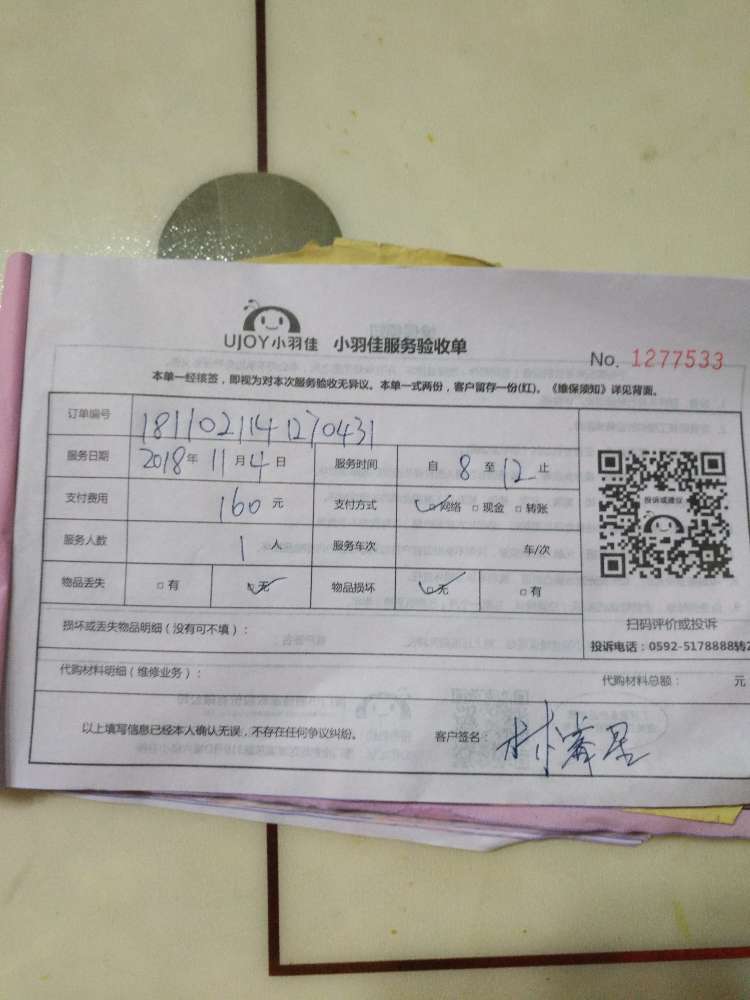 UJOY小羽佳 小羽佳服务验收单
No. 1277533
本单一经核签，即视为对本次服务验收无异议。本单一式两份，客户留存一份(红)。《维保须知》详见背面。
订单编号 1811021141270431
服务日期 2018年 11月4日 服务时间 自 8 至 12 止
支付费用 160 元 支付方式 □网络 □现金 □转账
服务人数 1 人 服务车次 车/次
物品丢失 □有 □无 物品损坏 □无 □有
投诉或建议
扫码评价或投诉
投诉电话：0592-5178888转2
损坏或丢失物品明细（没有可不填）：
代购材料明细（维修业务）： 代购材料总额： 元
以上填写信息已经本人确认无误，不存在任何争议纠纷。 客户签名：